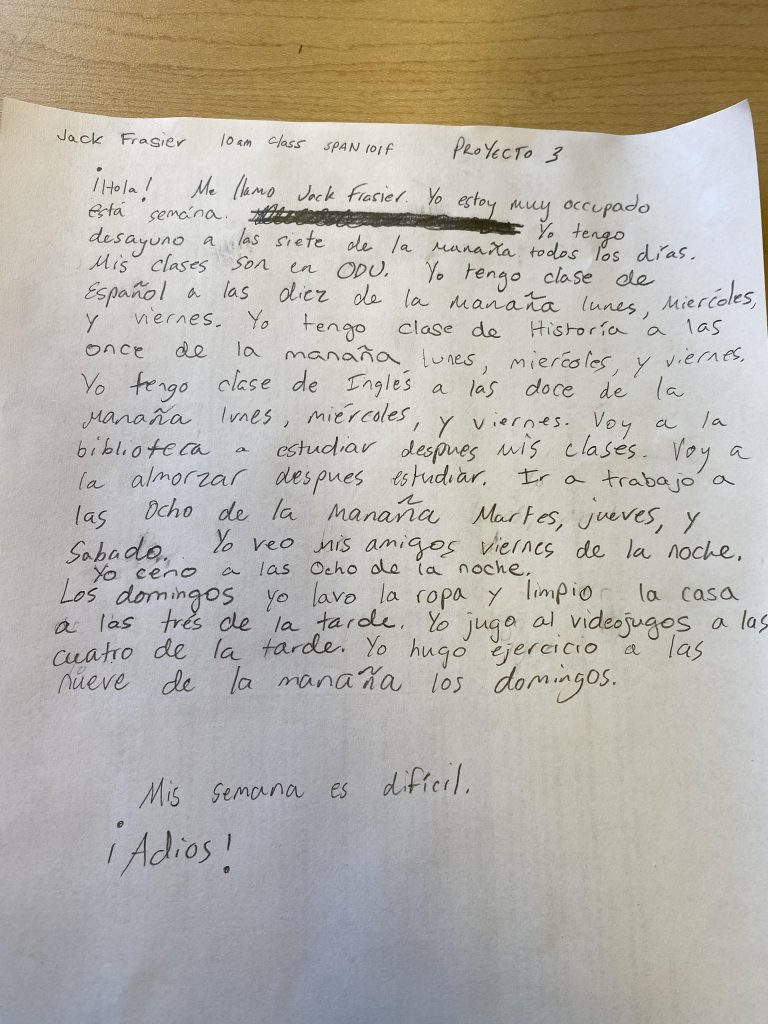 Jack Frasier 10am class SPAN 101F PROYECTO 3
¡Hola! Me llamo Jack Frasier. Yo estoy muy occupado
está semána. Yo tengo
desayuno a las siete de la manaña todos los días.
Mis clases son en ODU. Yo tengo clase de
Español a las diez de la manaña lunes, miercoles,
y viernes. Yo tengo clase de Historía a las
once de la manaña lunes, miercoles, y viernes.
Yo tengo clase de Inglés a las doce de la
manaña lunes, miércoles, y viernes. Voy a la
biblioteca a estudiar despues mis clases. Voy a
la almorzar despues estudiar. Ir a trabajo a
las ocho de la manaña Martes, jueves, y
Sabado. Yo veo mis amigos viernes de la noche.
Yo ceno a las ocho de la noche.
Los domingos yo lavo la ropa y limpio la casa
a las trés de la tarde. Yo jugo al videojugos a las
cuatro de la tarde. Yo hugo ejercicio a las
nueve de la manaña los domingos.
Mis semana es difícil.
¡Adios!